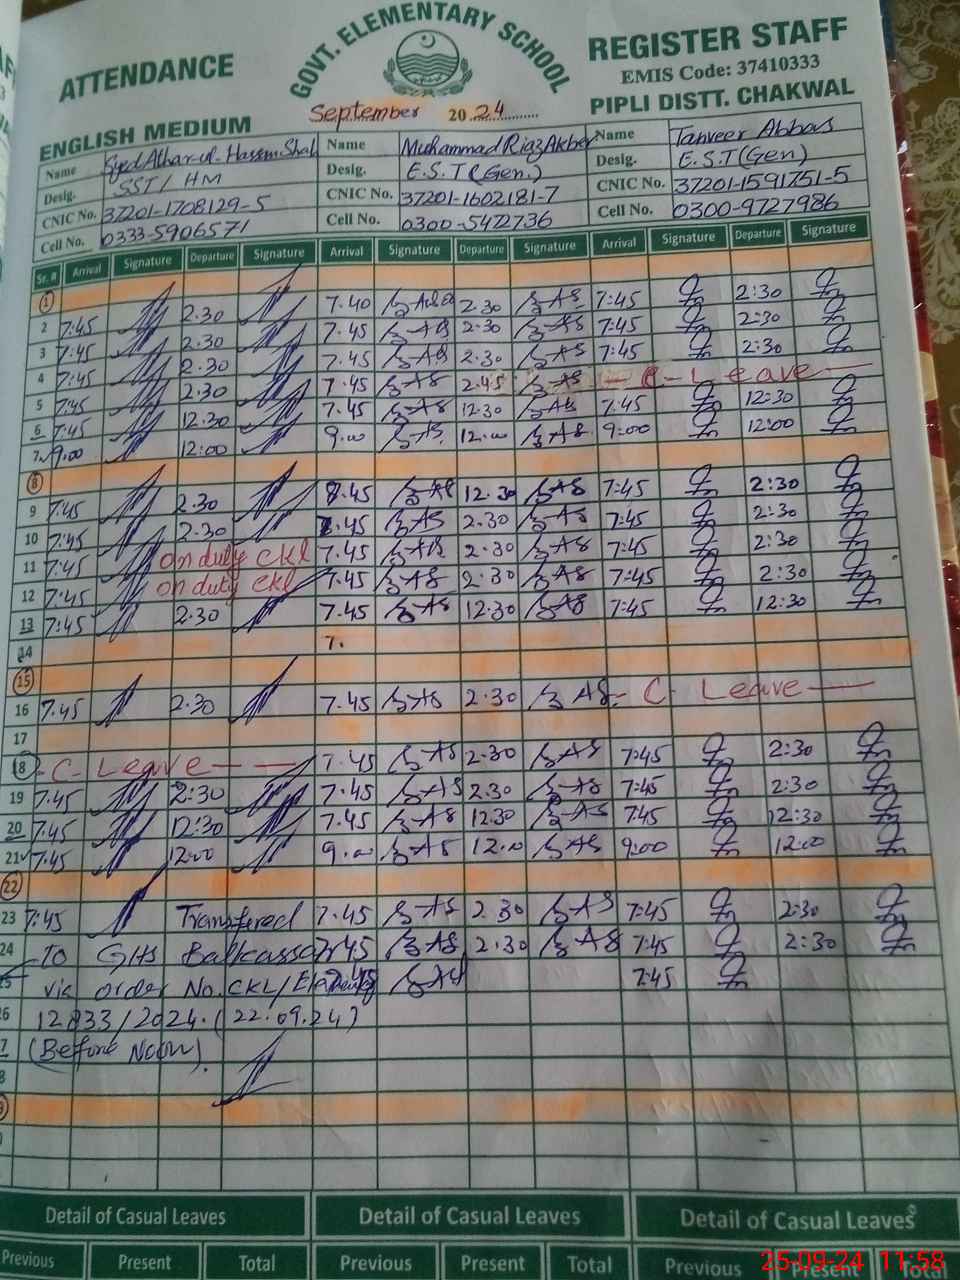 ATTENDANCE
GOVT. ELEMENTARY SCHOOL
REGISTER STAFF
EMIS Code: 37410333
September 2024
PIPLI DISTT. CHAKWAL
ENGLISH MEDIUM
Name Syed Athar-ul-Hassan Shah Name Muhammad Riaz Akber Name Tanveer Abbas
Desig. SST/HM Desig. E.S.T (Gen.) Desig. E.S.T (Gen)
CNIC No. 37201-1708129-5 CNIC No. 37201-1602181-7 CNIC No. 37201-1591751-5
Cell No. 0333-5906571 Cell No. 0300-5472736 Cell No. 0300-9727986
Sr. # Arrival Signature Departure Signature Arrival Signature Departure Signature Arrival Signature Departure Signature
1
2 7:45 2.30 7.40 2.30 7:45 2:30
3 7:45 2.30 7.45 2.30 7:45 2:30
4 7:45 2.30 7.45 2.30 7:45 2:30
5 7:45 2.30 7.45 2.45 - C - Leave -
6 7:45 12.30 7.45 12.30 7:45 12:30
7 9.00 12:00 9.00 12.00 9:00 12:00
8
9 7:45 2.30 7.45 12.30 7:45 2:30
10 7:45 2.30 7.45 2.30 7:45 2:30
11 7:45 on duty CKL 7.45 2.30 7:45 2:30
12 7:45 on duty CKL 7.45 2.30 7:45 2:30
13 7:45 2.30 7.45 12.30 7:45 12:30
14 7.
15
16 7.45 2.30 7.45 2.30 - C - Leave -
17
18 - C - Leave - - 7.45 2.30 7:45 2:30
19 7.45 2:30 7.45 2.30 7:45 2:30
20 7:45 12:30 7.45 12.30 7:45 12:30
21 7.45 12.00 9.00 12.00 9:00 12:00
22
23 7:45 Transfered 7.45 2.30 7:45 2:30
24 To GHS Balkassar 7.45 2.30 7:45 2:30
25 via order No. CKL/ 7.45 7:45
26 12833/2024. (22.09.24)
7 (Before Noon).
8
Detail of Casual Leaves Detail of Casual Leaves Detail of Casual Leaves
Previous Present Total Previous Present Total Previous Present Total
25-09-24 11:58